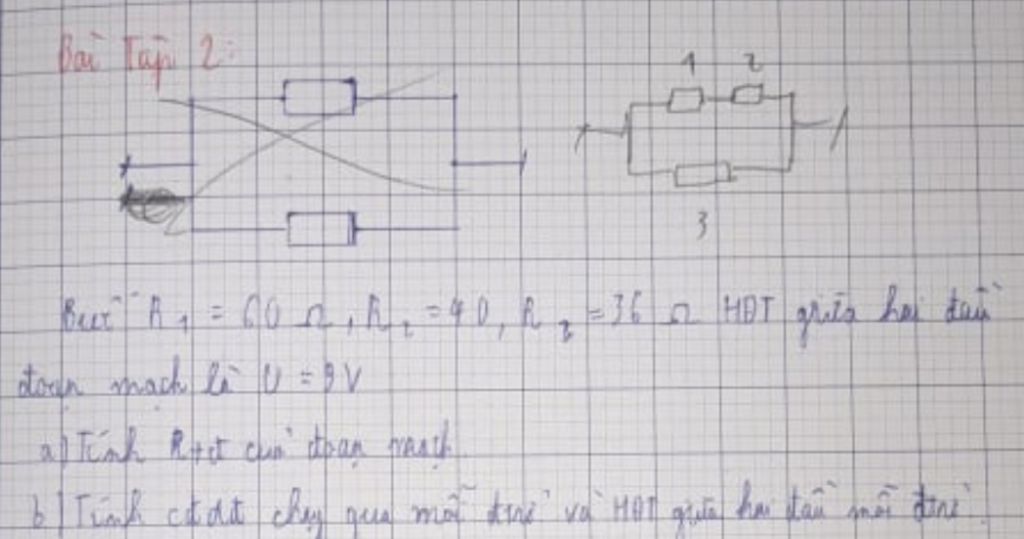 Bài Tập 2:
1 2
3
Biết R1 = 60 Ω, R2 = 40, R3 = 36 Ω HĐT giữa hai đầu
đoạn mạch là U = 9V
a) Tính Rtđ của đoạn mạch.
b) Tính cđdđ chạy qua mỗi đtrở và HĐT giữa hai đầu mỗi đtrở